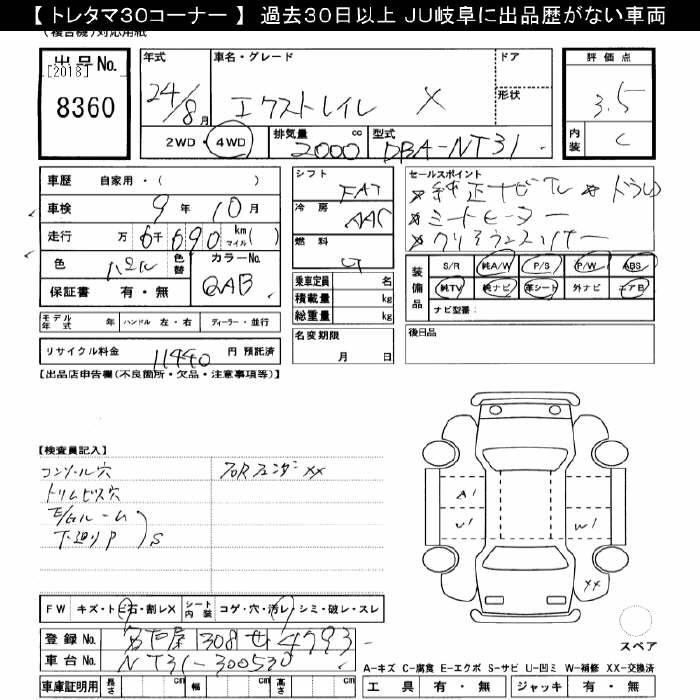 【 トレタマ30コーナー 】 過去30日以上 JU岐阜に出品歴がない車両
(複合機)対応用紙
出品No.
[2018]
8360
年式
24/8月
車名・グレード
エクストレイル X
ドア
形状
2WD・4WD
排気量
2000 cc
型式
DBA-NT31
評価点
3.5
内装
C
車歴 自家用・( )
車検 9年 10月
走行 万 6千 690 km マイル( )
色 パール
色替
カラーNo.
QAB
保証書 有・無
モデル年式 年
ハンドル 左・右
ディーラー・並行
リサイクル料金 11440 円 預託済
シフト
FAT
冷房
AAC
燃料
G
乗車定員 名
積載量 kg
総重量 kg
名変期限
月 日
セールスポイント
※純正ナビTV ※ドラレコ
※シートヒーター
※クリアランスソナー
装備品
S/R
純A/W
P/S
P/W
ABS
純TV
純ナビ
革シート
外ナビ
エアB
ナビ型番:
後日品
【出品店申告欄(不良箇所・欠品・注意事項等)】
【検査員記入】
コンソール穴
フロRフェンダーXX
トリムビス穴
E/Gルーム
下廻りP
S
A1
U1
W1
XX
スペア
FW キズ・トビ石・割レX
シート内装 コゲ・穴・汚レ・シミ・破レ・スレ
登録No. 名古屋 308 せ 4793
車台No. NT31-300530
車庫証明用 長さ cm 幅 cm 高さ cm
A-キズ C-腐食 E-エクボ S-サビ U-凹ミ W-補修 XX-交換済
工具 有・無 ジャッキ 有・無